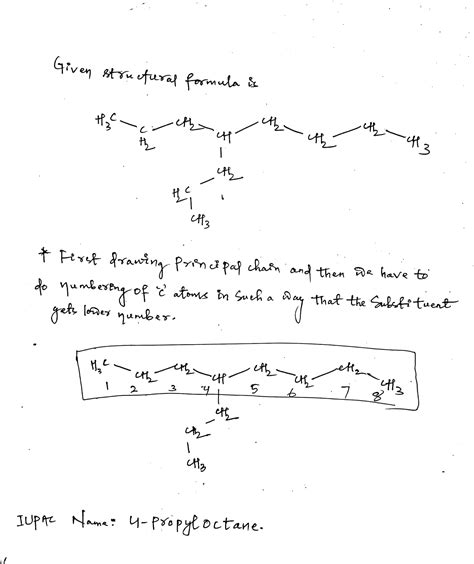 Given structural formula is
H3C CH2 CH2 CH CH2 CH2 CH2 CH3
CH2
H2C
CH3
* First drawing principal chain and then we have to
do numbering of 'c' atoms in such a way that the substituent
gets lower number.
H3C CH2 CH2 CH CH2 CH2 CH2 CH3
1 2 3 4 5 6 7 8
CH2
CH2
CH3
IUPAC Name: 4-propyl octane.